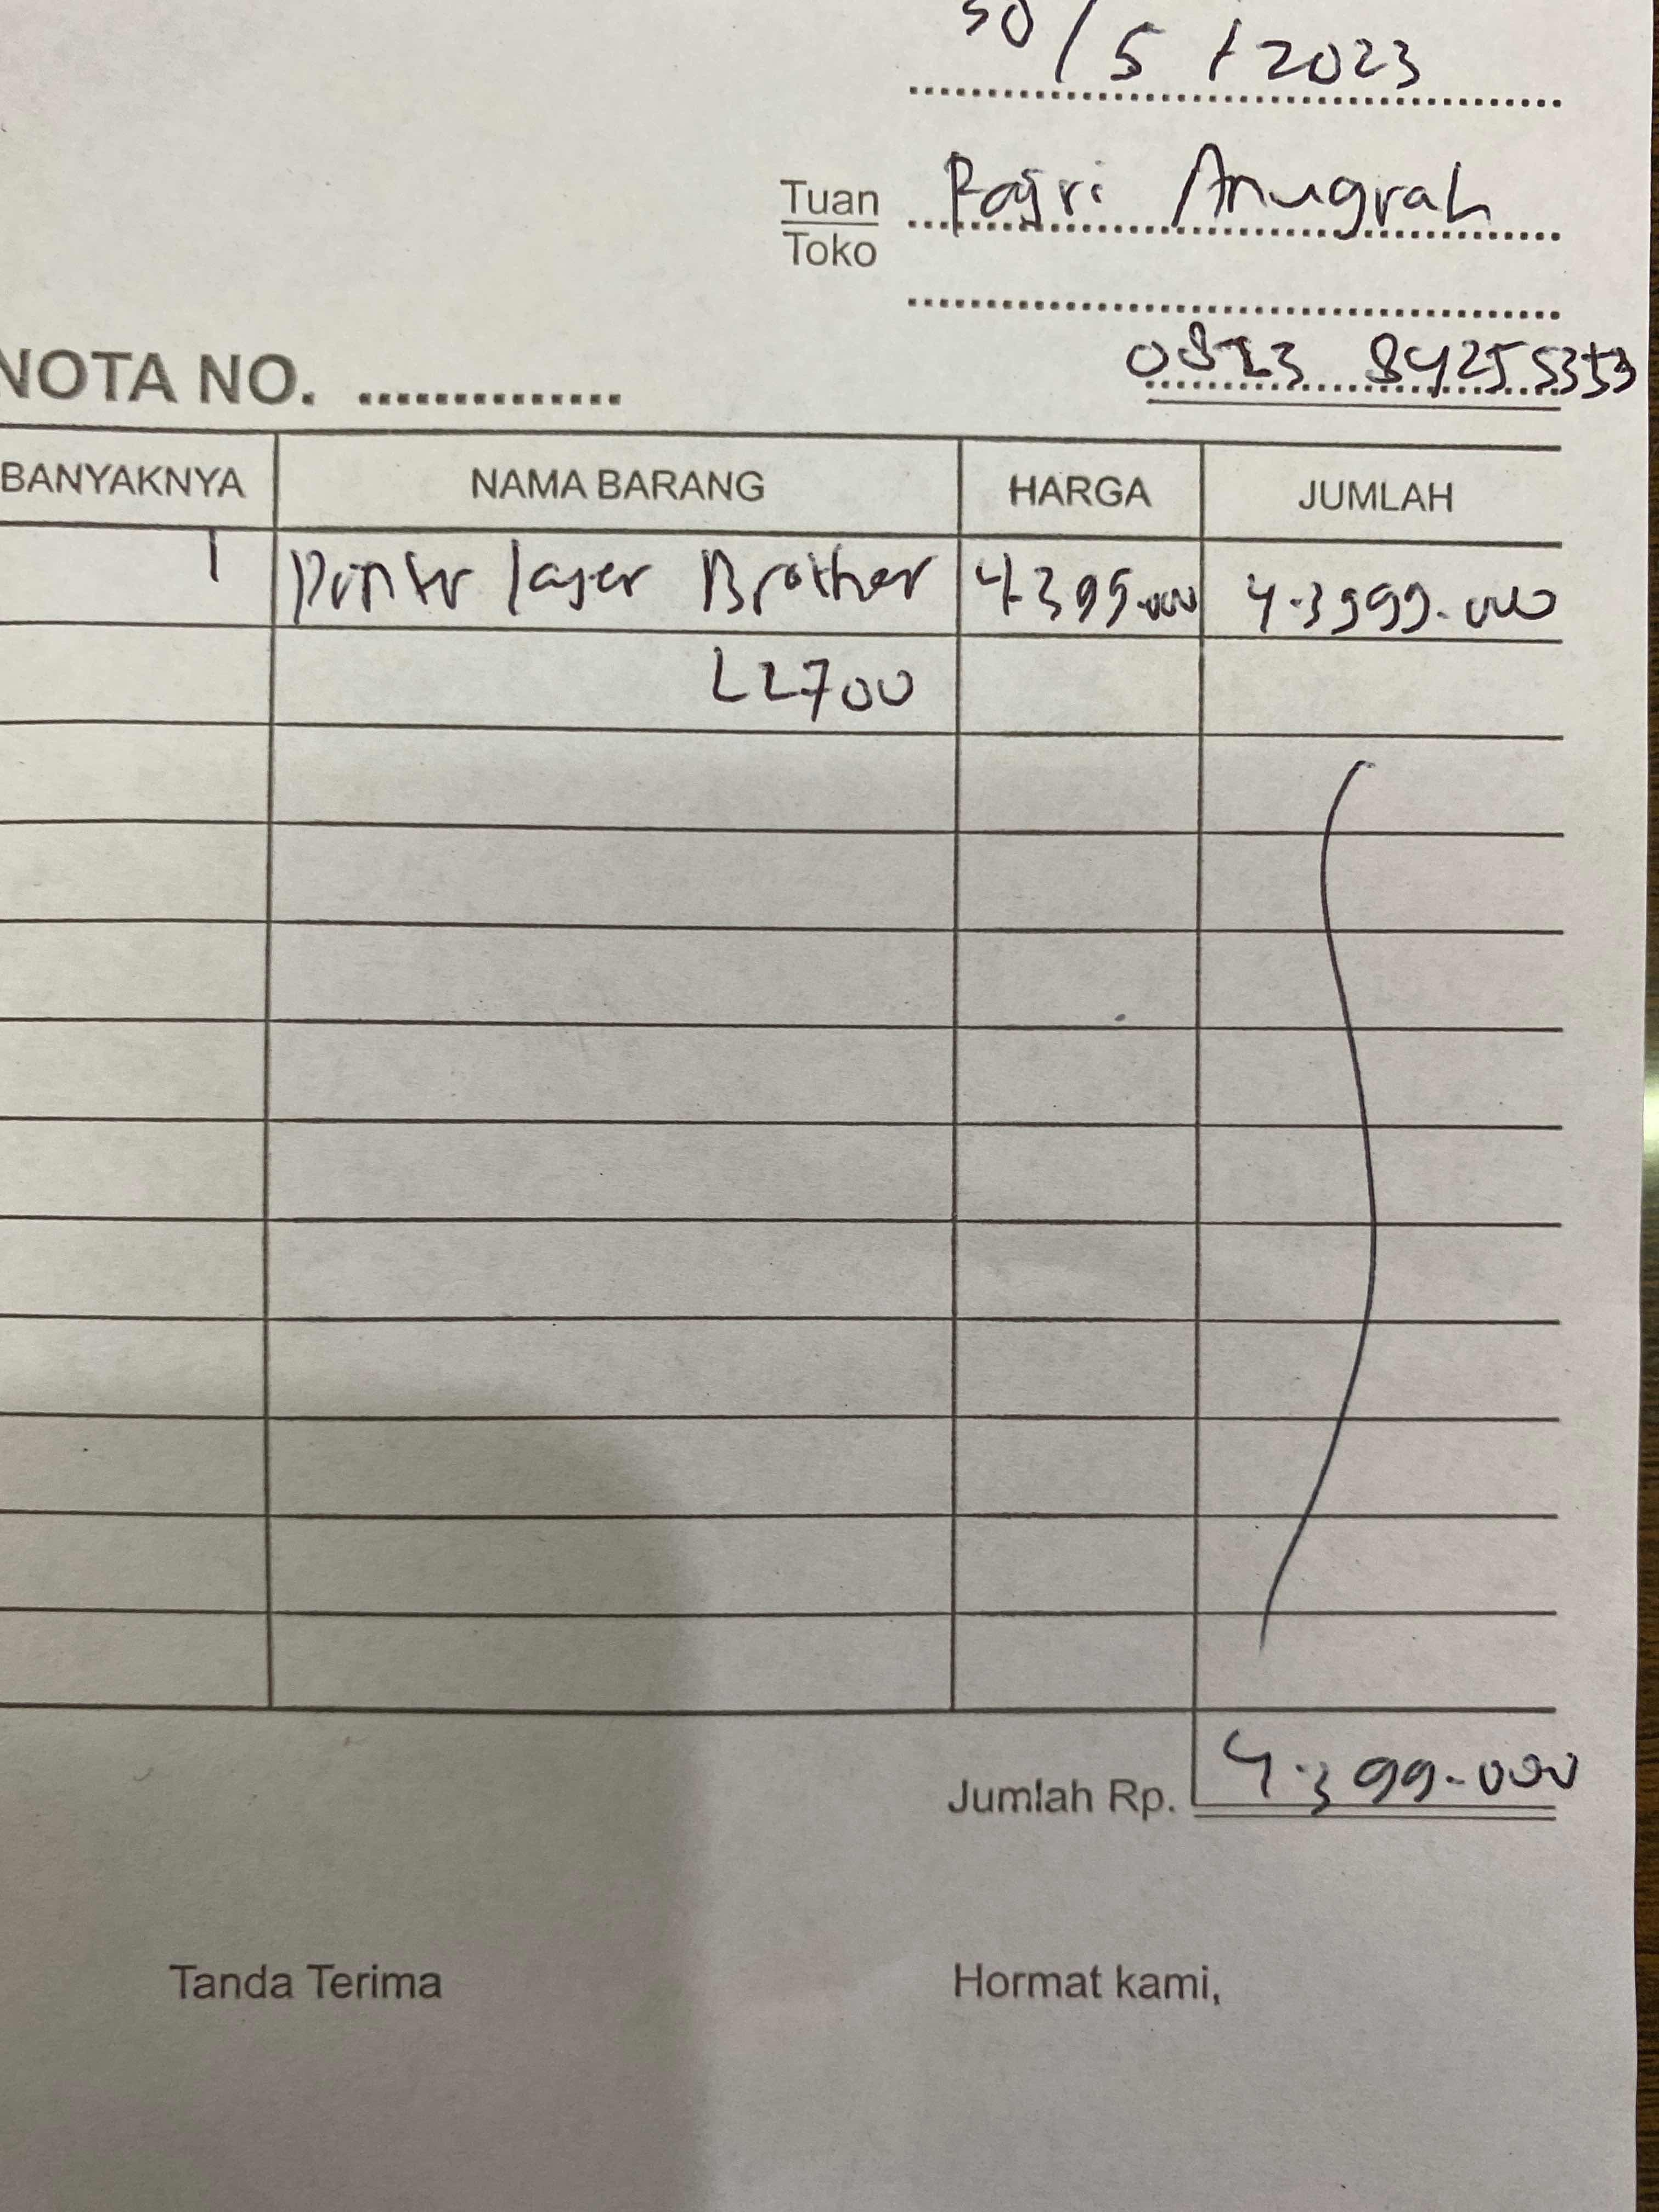 30/5/2023
Tuan Fajri Anugrah
Toko
NOTA NO. ..............
BANYAKNYA NAMA BARANG HARGA JUMLAH
1 Printer laser Brother 4.399.000 4.3999.000
L2700
Jumlah Rp. 4.399.000
Tanda Terima Hormat kami,